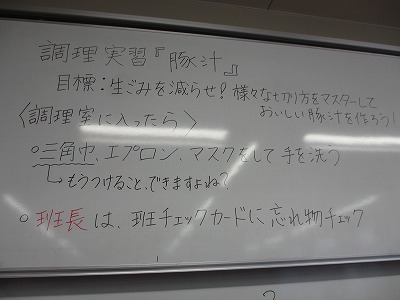 調理実習『豚汁』
目標：生ごみを減らせ！様々な切り方をマスターして
おいしい豚汁を作ろう！
〈調理室に入ったら〉
○三角巾、エプロン、マスクをして手を洗う
→もうつけること、できますよね？
○班長は、班チェックカードに忘れ物チェック